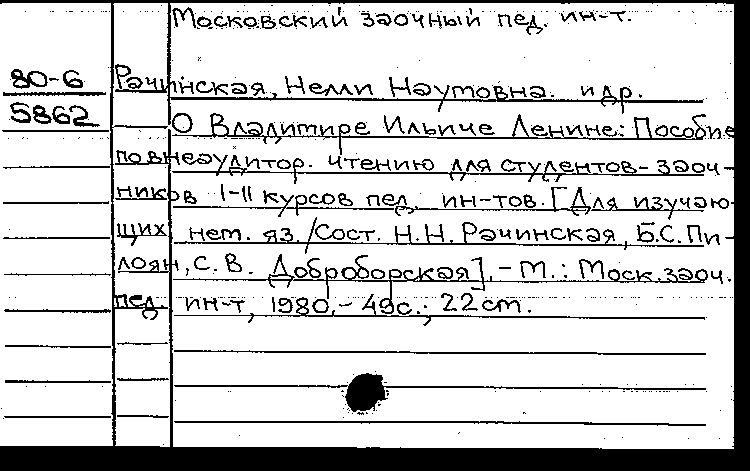 Московский заочный пед. ин-т.
80-6
5862
Рачинская, Нелли Наумовна. и др.
О Владимире Ильиче Ленине: Пособие
по внеаудитор. чтению для студентов-заоч-
ников I-II курсов пед. ин-тов. [Для изучаю-
щих нем. яз./Сост. Н.Н. Рачинская, Б.С. Пи-
лоян, С.В. Доброборская]. - М.: Моск. заоч.
пед. ин-т, 1980. - 49с.; 22 cm.